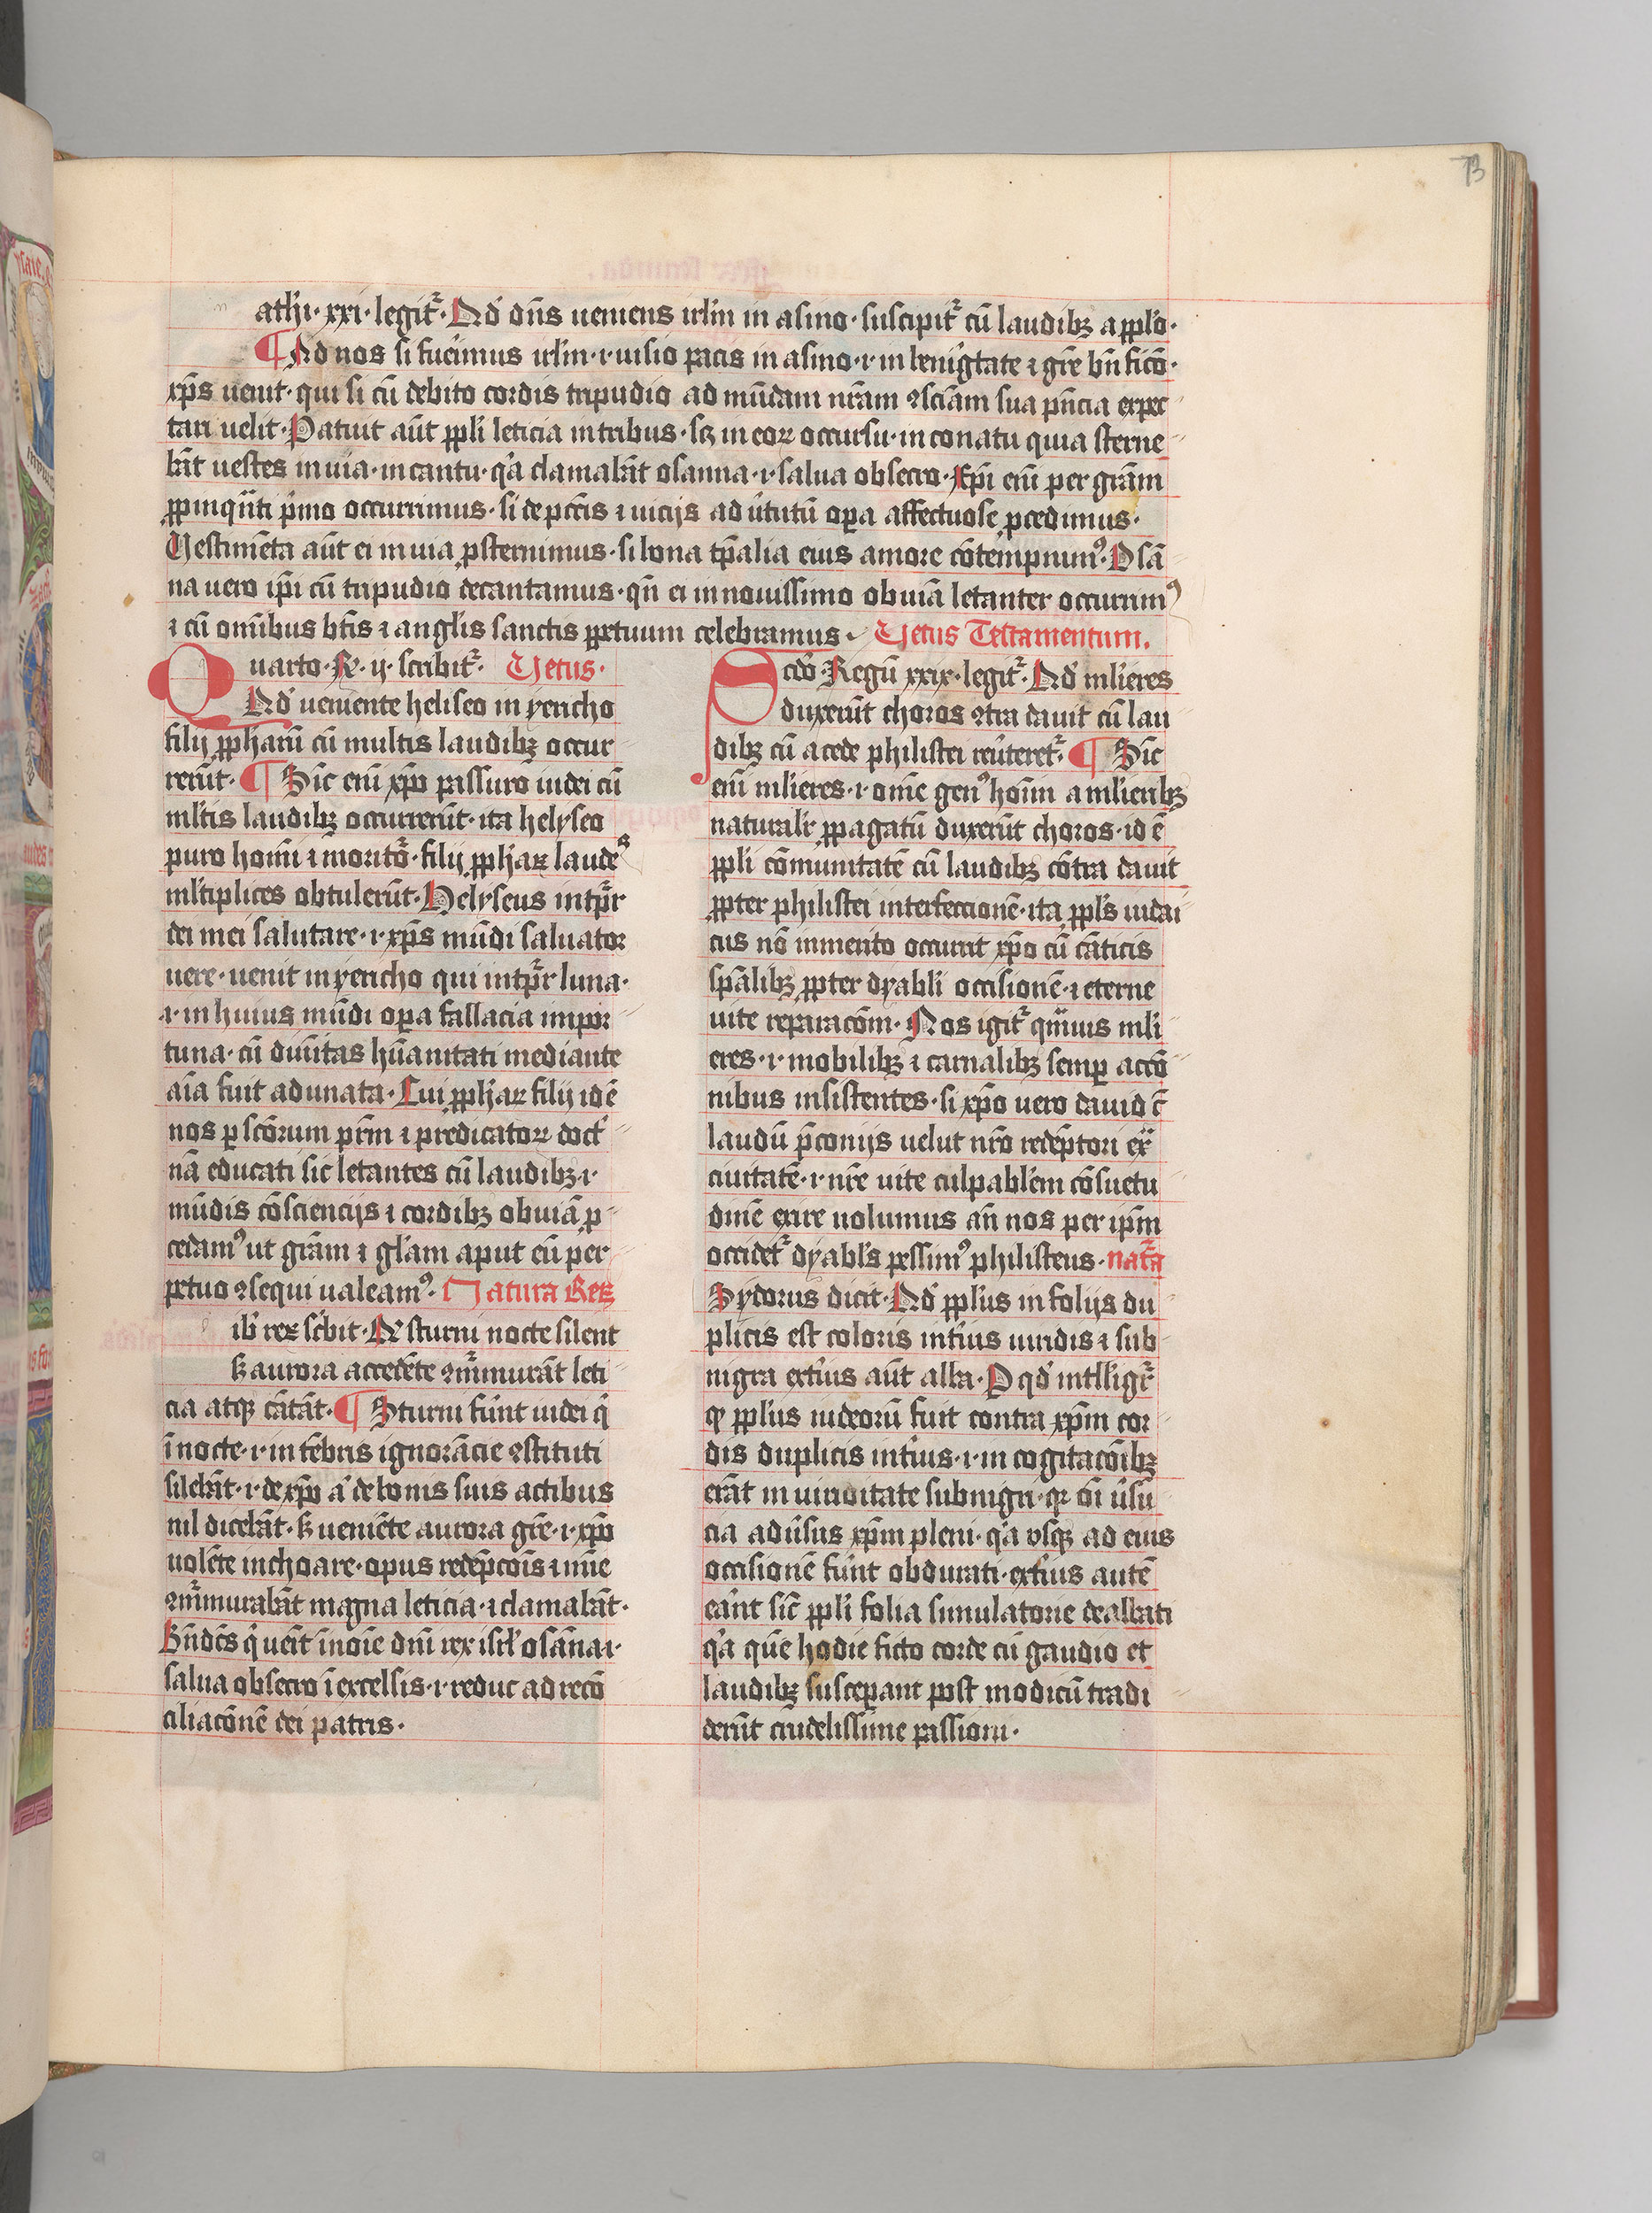 73
athi · xxi · legit᷑ · Qd' dn̄s ueniens irl̄m in asino · suscipit᷑ cū laudibꝫ a ppl'o ·
¶ Ad nos si fucimus irl̄m · i · uisio pacis in asino · i · in benigtate ⁊ grē
xp̄s uenit · qui si cū debito cordis tripudio ad mūdam nrām ꝯsciam sua pn̄cia expec
tari uelit · Patuit aūt ppl̄i leticia in tribus · scꝫ in eoꝝ occursu · in conatu quia sterne
bāt uestes in uia · in cantu · q'a clamabāt osanna · i · salua obsecro · Xp̄i eni per grām
ꝓpinqn̄ti p'mo occurrimus · si de pctīs ⁊ uicijs ad u'tutū oꝑa affectuose ꝓcedimus ·
Uestimēta aūt ei in uia ꝓsternimus · si bona tp̄alia eius amore cōtempnimꝰ · Osā
na uero ip̄i cū tripudio decantamus · qn̄ ei in nouissimo obuiā letanter occurrimꝰ
⁊ cū omībus btīs ⁊ anglīs sanctis ꝑpetuum celebramus · Uetus Testamentum.
Quarto · R · ij · scribit᷑ · Uetus ·
Qd' ueniente heliseo in yericho
filij ꝓpharū cū multis laudibꝫ occur
rerūt · ¶ Sic eni xp̄o passuro iudei cū
ml'tis laudibꝫ occurrerūt · ita helyseo
puro homi ⁊ morit'o · filij ꝓph'aꝝ laudes
ml'tiplices obtulerūt · Helyseus intp̄r
dei mei salutare · i · xp̄s mūdi saluator
uere · uenit in yericho qui intp̄r luna ·
i · in huius mūdi oꝑa fallacia impor
tuna · cū diuītas hūanitati mediante
aīa fuit adunata · Cui ꝓph'aꝝ filij id ē
nos ꝑ scōrum prm̄ ⁊ predicatoꝝ doct'
nā educati sic letantes cū laudibꝫ · i ·
mūdis cōsciencijs ⁊ cordibꝫ obuiā ꝓ
cedamꝰ ut grām ⁊ gl'am aput eū per
petuo ꝯsequi ualeamꝰ · Natura Reꝝ
ib' reꝝ sc'bit · Qd' sturni nocte silent
sꝫ aurora accedēte ꝯm'murāt leti
cia atqꝫ cātāt · ¶ Sturni sūnt iudei q'
ī nocte · i · in tēbris ignorācie ꝯstituti
silebāt · i · de xp̄o a' de bonis suis actibus
nil dicebāt · sꝫ ueniēte aurora grē · i · xp̄o
uolēte inchoare · opus redēpcōis
ꝯm'murabāt magna leticia · ⁊ clamabāt ·
Bn̄dc̄s q' uēit ī noīe dn̄i rex isrl' osāna · i ·
salua obsecro ī excelsis · i · reduc ad recō
ciliacōnē dei patris ·
Scd'o Regū xxix · legit᷑ · Qd' ml'ieres
duxerūt choros ꝯtra dauit cū lau
dibꝫ cū a cede philistei reu'teret᷑ · ¶ Sic
eni ml'ieres · i · om̄e genꝰ hoīm a ml'ieribꝫ
naturalit' ꝓpagatū duxerūt choros · id ē
ppl̄i cōmunitatē cū laudibꝫ cōtra dauit
ꝓpter philistei interfeccionē · ita ppl's iudai
cus nō inmerito occurrit xp̄o cū cāticis
spālibꝫ ꝓpter dyabli occisionē · ⁊ eterne
uite reparacōm · Nos igit᷑ qmuis mli
eres · i · mobilibꝫ ⁊ carnalibꝫ semꝑ accō
nibus insistentes · si xp̄o uero dauid c̄
laudū p̄conijs uelut nrō redēptori ex
ciuitatē · i · nrē uite culpabl'em cōsuetu
dinē exire uolumus an̄ nos per ip̄m
occidet᷑ dyabl's pessimꝰ philisteus · nat᷑a
Sydorus dicit · Qd' ppl'us in folijs du
plicis est coloris int'ius uiridis ⁊ sub
nigra ext'ius aūt alba · P qd' intlligr᷑
qꝫ ppl'us iudeorū fuit contra xp̄m cor
dis duplicis int'ius · i · in cogitacōibꝫ
erāt in uiriditate subnigri · qꝛ oī u'su
cia adu'sus xp̄m pleni · q'a usqꝫ ad eius
occisionē sūnt obdurati · ext'ius autē
erānt sic ppl̄i folia simulatorie dealbati
q'a quē hodie ficto corde cū gaudio et
laudibꝫ susceperant post modicū tradi
derūt crudelissime passioni ·